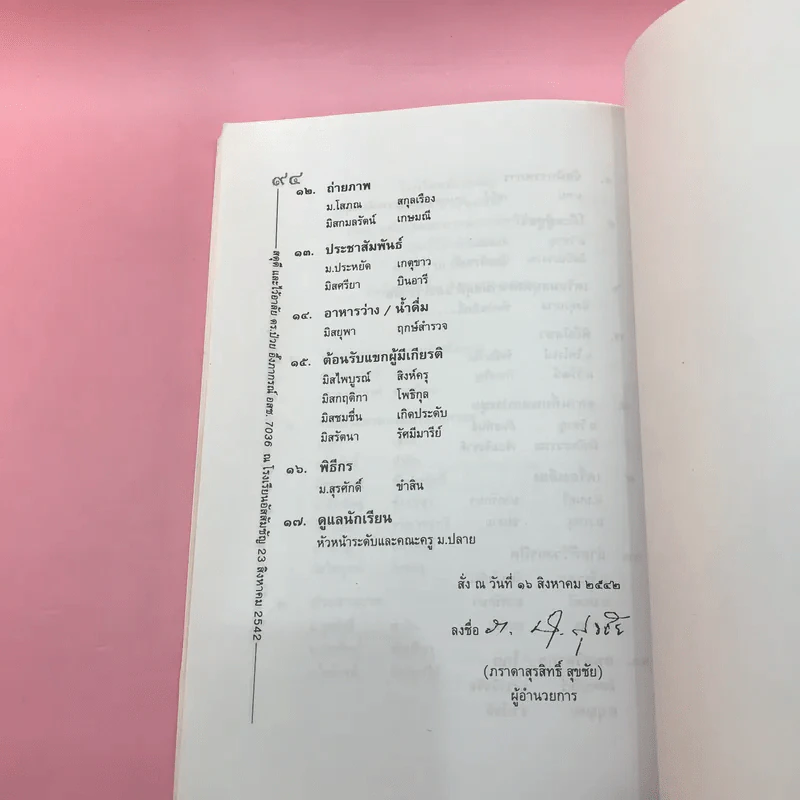 ๙๔
๑๒. ถ่ายภาพ
ม.โสภณ สกุลเรือง
มิสกมลรัตน์ เกษมณี
๑๓. ประชาสัมพันธ์
ม.ประหยัด เกตุขาว
มิสศรียา บินอารี
๑๔. อาหารว่าง / น้ำดื่ม
มิสยุพา ฤกษ์สำรวจ
๑๕. ต้อนรับแขกผู้มีเกียรติ
มิสไพบูรณ์ สิงห์ครุ
มิสกฤติกา โพธิกุล
มิสชมชื่น เกิดประดับ
มิสรัตนา รัศมีมารีย์
๑๖. พิธีกร
ม.สุรศักดิ์ ขำสิน
๑๗. ดูแลนักเรียน
หัวหน้าระดับและคณะครู ม.ปลาย
สั่ง ณ วันที่ ๑๖ สิงหาคม ๒๕๔๒
ลงชื่อ
(ภราดาสุรสิทธิ์ สุขชัย)
ผู้อำนวยการ
สดุดี และไว้อาลัย ดร.ป๋วย อึ๊งภากรณ์ อสช. 7036 ณ โรงเรียนอัสสัมชัญ 23 สิงหาคม 2542